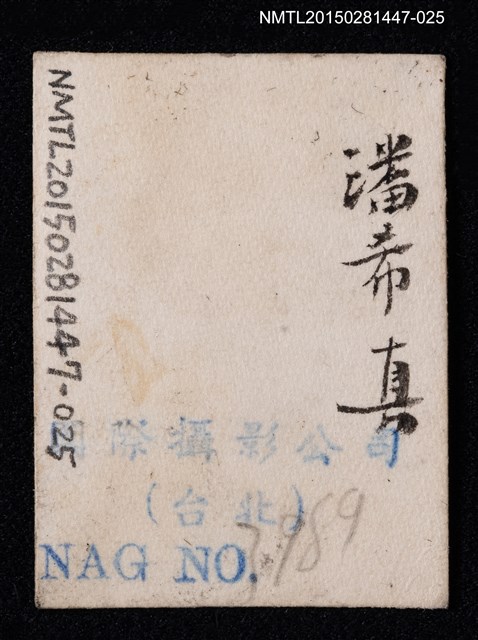 NMTL20150281447-025
潘希真
NMTL20150281447-025
國際攝影公司
(台北)
NAG NO. 3989